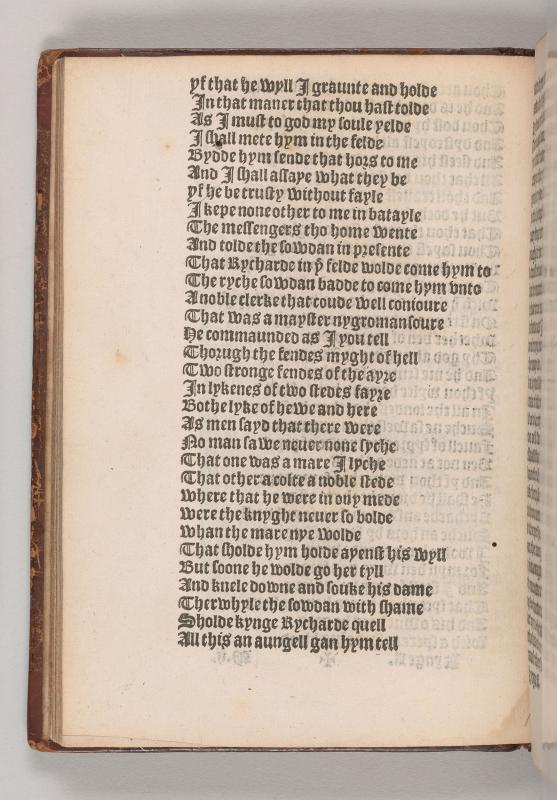 yf that he wyll I graunte and holde
In that maner that thou hast tolde
As I must to god my soule yelde
I shall mete hym in the felde
Bydde hym sende that hors to me
And I shall assaye what they be
yf he be trusty without fayle
I kepe none other to me in batayle
The messengers tho home wente
And tolde the sowdan in presente
That Rycharde in þͤ felde wolde come hym to
The ryche sowdan badde to come hym vnto
A noble clerke that coude well conioure
That was a mayster nygromansoure
He commaunded as I you tell
Thorugh the fendes myght of hell
Two stronge fendes of the ayre
In lykenes of two stedes fayre
Bothe lyke of hewe and here
As men sayd that there were
No man sawe neuer none syche
That one was a mare I lyche
That other a colte a noble stede
where that he were in ony mede
were the knyght neuer so bolde
whan the mare nye wolde
That sholde hym holde ayenst his wyll
But soone he wolde go her tyll
And knele downe and souke his dame
Therwhyle the sowdan with shame
Sholde kynge Rycharde quell
All this an aungell gan hym tell